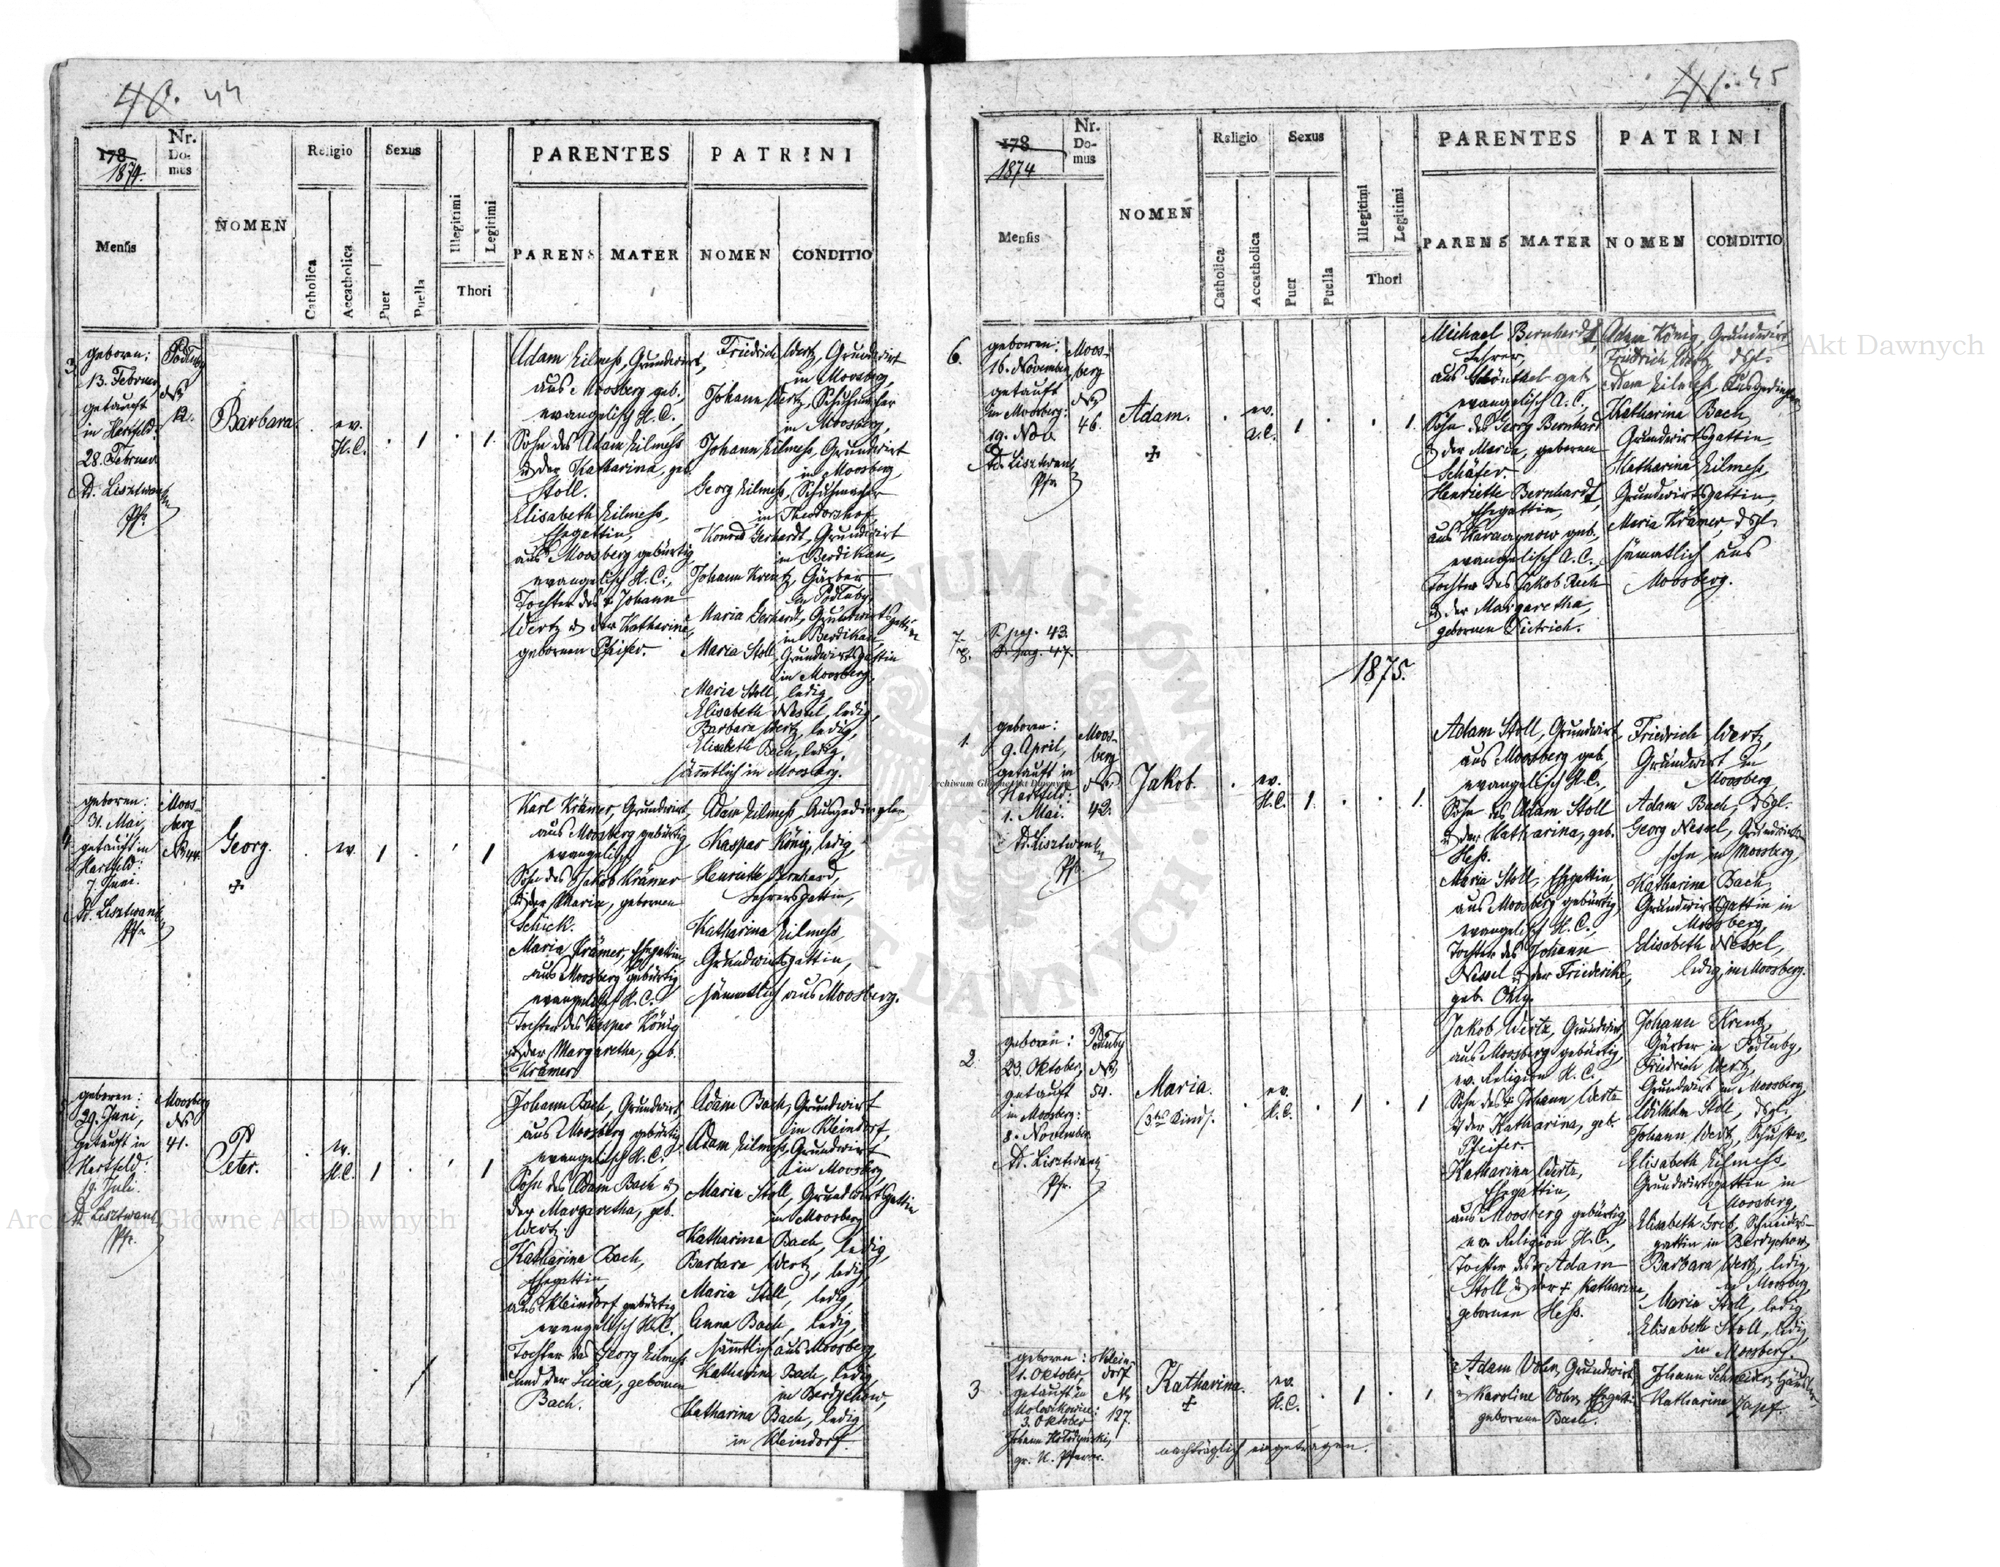 40. 44
178
1874.
Nr.
Do-
mus
Religio
Sexus
PARENTES
PATRINI
Mensis
NOMEN
Catholica
Accatholica
Puer
Puella
Illegitimi
Legitimi
Thori
PARENS
MATER
NOMEN
CONDITIO
3.
geboren:
13. Februar
getauft
in Hartfeld:
28. Februar
Ad. Lisztwan
Pfr.
Podluby
N
12.
Barbara.
ev.
H.C.
1
1.
Adam Zilmess, Grundwirt,
aus Moosberg geb.,
evangelisch H.C.,
Sohn des Adam Zilmess
u der Katharina, geb.
Stoll.
Elisabeth Zilmess,
Ehegattin,
aus Moosberg gebürtig
evangelisch H.C.,
Tochter des + Johann
Wertz u der Katharina,
gebornen Pfeifer.
Friedrich Wertz, Grundwirt
in Moosberg,
Johann Wertz, Schuhmacher
in Moosberg,
Johann Zilmess, Grundwirt
in Moosberg,
Georg Zilmess, Schuhmacher
in Theodorshof,
Konrad Gerhardt, Grundwirt
in Berdikau,
Johann Krentz, Gärber
in Podluby,
Maria Gerhardt, Grundwirtsgattin
in Berdikau,
Maria Stoll, Grundwirtsgattin
in Moosberg,
Maria Stoll, ledig,
Elisabeth Nessel, ledig,
Barbara Wertz, ledig,
Elisabeth Bach, ledig,
sämmtlich in Moosberg.
4.
geboren:
31. Mai,
getauft in
Hartfeld:
7. Juni.
Ad. Lisztwan
Pfr.
Moos-
berg
N 44.
Georg.
+
ev.
1
1
Karl Krämer, Grundwirt,
aus Moosberg gebürtig,
evangelisch
Sohn des Jakob Krämer
u der Maria, gebornen
Schick.
Maria Krämer, Ehegattin,
aus Moosberg gebürtig,
evangelisch H.C.,
Tochter des Kaspar König
u der Margaretha, geb.
Krämer.
Adam Zilmess, Ausgedingler
Kaspar König, ledig,
Henriette Bernhard,
Lehrersgattin,
Katharina Zilmess
Grundwirtsgattin,
sämmtlich aus Moosberg.
geboren:
29. Juni,
getauft in
Hartfeld:
19. Juli.
Ad. Lisztwan
Pfr.
Moosberg
N
41.
Peter.
ev.
H.C.
1
1
Johann Bach, Grundwirt
aus Moosberg gebürtig,
evangelisch H.C.
Sohn des Adam Bach u
der Margaretha, geb.
Wertz
Katharina Bach,
Ehegattin
aus Kleindorf gebürtig,
evangelisch H.C.,
Tochter des Georg Zilmess
und der Luise, gebornen
Bach.
Adam Bach, Grundwirt
in Kleindorf,
Adam Zilmess, Grundwirt
in Moosberg,
Maria Stoll, Grundwirtsgattin
in Moosberg
Katharina Bach, ledig,
Barbara Wertz, ledig,
Maria Stoll, ledig,
Anna Bach, ledig,
sämmtlich aus Moosberg,
Katharina Bach, ledig
in Berdychow,
Katharina Bach, ledig
in Kleindorf.
41. 45
178
1874
Nr.
Do-
mus
Religio
Sexus
PARENTES
PATRINI
Mensis
NOMEN
Catholica
Accatholica
Puer
Puella
Illegitimi
Legitimi
Thori
PARENS
MATER
NOMEN
CONDITIO
6.
geboren:
16. November
getauft
in Moosberg:
19. Nov.
Ad. Lisztwan
Pfr.
Moos-
berg
N
46.
Adam.
+
ev.
A.C.
1
1.
Michael Bernhardt
Lehrer,
aus Schönthal geb.
evangelisch A.C.,
Sohn des Georg Bernhardt
u der Maria, gebornen
Schäfer.
Henriette Bernhardt,
Ehegattin,
geb.,
evangelisch A.C.,
Tochter des Jakob
u der Margaretha,
gebornen Dietrich.
Adam König, Grundwirt
Friedrich Wertz, dsgl.
Adam Zilmess, Ausgedingler
Katharina Bach,
Grundwirtsgattin
Katharina Zilmess,
Grundwirtsgattin,
Maria Krämer, dsgl.
sämmtlich aus
Moosberg.
7. S. pag. 43.
8. S. pag. 47.
1875.
1.
geboren:
9. April,
getauft in
Hartfeld:
1. Mai.
Ad. Lisztwan
Pfr.
Moos-
berg
N
42.
Jakob.
ev.
H.C.
1.
1.
Adam Stoll, Grundwirt,
aus Moosberg geb.,
evangelisch H.C.
Sohn des Adam Stoll
u der Katharina, geb.
Hess.
Maria Stoll, Ehegattin,
aus Moosberg gebürtig,
evangelisch H.C.,
Tochter des Johann
Nessel u der Friederike,
geb.
Friedrich Wertz,
Grundwirt in
Moosberg
Adam Bach, dsgl.
Georg Nessel, Grundwirts-
sohn in Moosberg
Katharina Bach,
Grundwirtsgattin in
Moosberg,
Elisabeth Nessel,
ledig in Moosberg.
2
geboren:
23. Oktober,
getauft
in Moosberg:
8. November
Ad. Lisztwan
Pfr.
Podluby
N
54.
Maria.
(3tes Kind).
ev.
H.C.
1
1
Jakob Wertz, Grundwirt,
aus Moosberg gebürtig,
ev. Religion H.C.
Sohn des + Johann Wertz
u der Katharina, geb.
Pfeifer.
Katharina Wertz,
Ehegattin,
aus Moosberg gebürtig
ev. Religion H.C.,
Tochter des Adam
Stoll u der + Katharina,
gebornen Hess.
Johann Krentz,
Gärber in Podluby,
Friedrich Wertz,
Grundwirt in Moosberg,
Wilhelm Stoll, dsgl.,
Johann Wertz, Schuster,
Elisabeth Zilmess
Grundwirtsgattin in
Moosberg,
Elisabeth Greb, Schneiders-
gattin in Berdychow,
Barbara Wertz, ledig,
in Moosberg,
Maria Stoll, ledig
Elisabeth Stoll, ledig,
in Moosberg
3
geboren:
1. Oktober,
getauft in
Moloszkowice:
3. Oktober
gr. K. Pfarrer.
Klein-
dorf
N
127.
Katharina.
+
ev.
H.C.
1
1
Adam Grundwirt
u Karoline Ehegat:
geborene Bach.
Johann Schneider,
Katharina
nachträglich eingetragen.
Archiwum Główne Akt Dawnych